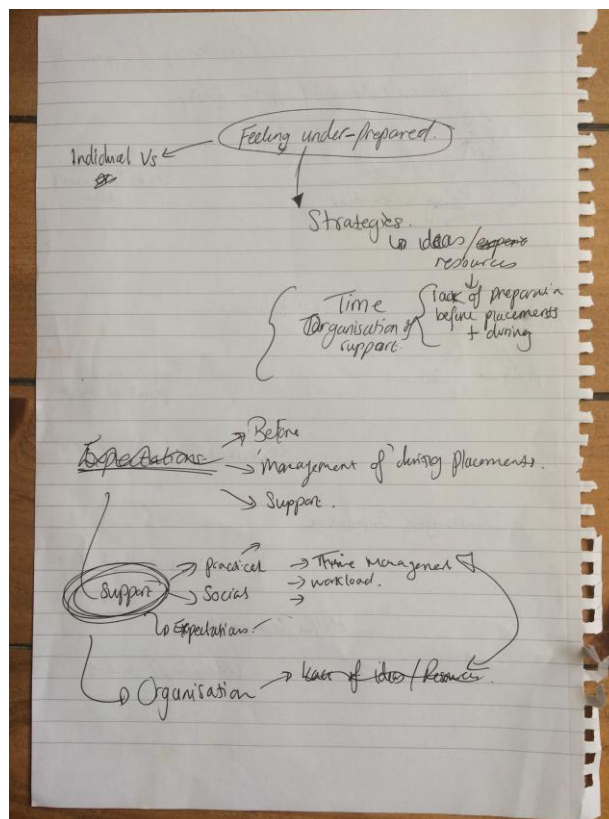 Feeling under-prepared.
Indidual Vs
Strategies.
ideas/
resources
Time
Organisation of
support
lack of preparation
before placements
+ during
Expectations
Before
'Management of' during placements.
Support.
Support
practical
Social
Expectations
Time Management
workload.
Organisation
Lack of ideas / Resources.